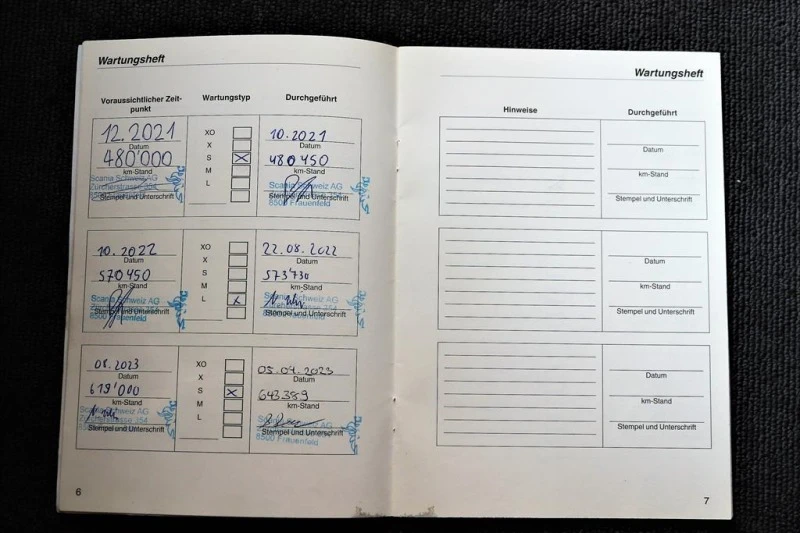 Wartungsheft
Voraussichtlicher Zeit-
punkt
Wartungstyp
Durchgeführt
12.2021
Datum
480'000
km-Stand
Scania Schweiz AG
Zürcherstrasse 354
Stempel und Unterschrift
XO
X
S
M
L
10.2021
Datum
480450
km-Stand
Scania Schweiz AG
Stempel und Unterschrift
8500 Frauenfeld
10.2022
Datum
570450
km-Stand
Scania Schweiz AG
Stempel und Unterschrift
8500 Frauenfeld
XO
X
S
M
L
22.08.2022
Datum
573'730
km-Stand
Scania Schweiz AG
Stempel und Unterschrift
8500 Frauenfeld
08.2023
Datum
619'000
km-Stand
Scania Schweiz AG
Zürcherstrasse 354
Stempel und Unterschrift
XO
X
S
M
L
Datum
643389
km-Stand
Stempel und Unterschrift
8500 Frauenfeld
6
Wartungsheft
Hinweise
Durchgeführt
Datum
km-Stand
Stempel und Unterschrift
Datum
km-Stand
Stempel und Unterschrift
Datum
km-Stand
Stempel und Unterschrift
7